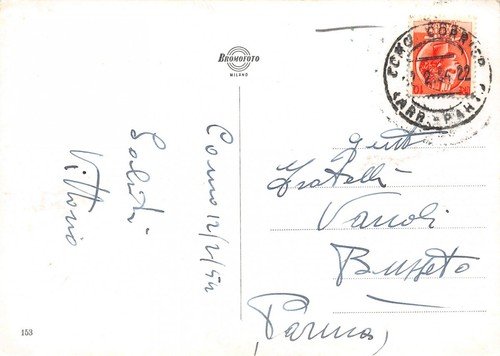 BROMOFOTO
MILANO
Como 12/2/52
Saluti
Vittorio
Fratelli
Vanoli
Busseto
(Parma)
COMO CORR
ARR. PART
153